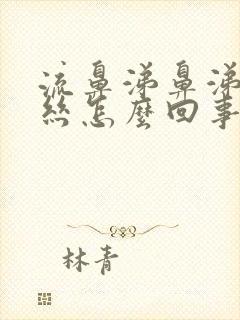 流鼻涕鼻涕
丝怎麼回事
林青